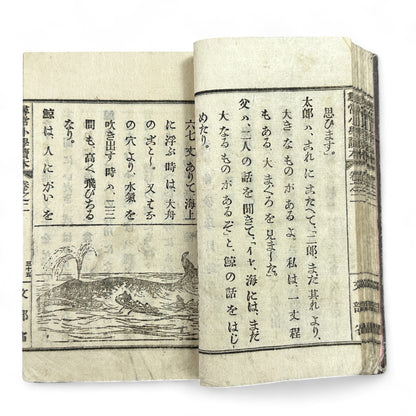 思ひます」
太郎ハ、これにこたへて、「二郎、まだ其れより、
大きなものがあるよ、私は、一丈程
もある、大まぐろを見ました」
父ハ、二人の話を聞きて、「イヤ、海には、まだ
大なるものがあるぞ」と、鯨の話をはじ
めたり。
文部省
六七丈ありて、海上
に浮ぶ時は、大舟
の
の穴より、水氣を
吹き出す時ハ、二三
間も、高く飛びちる
なり。
鯨は、人にがいを
尋常小學讀本 卷之二
三十五
文部省